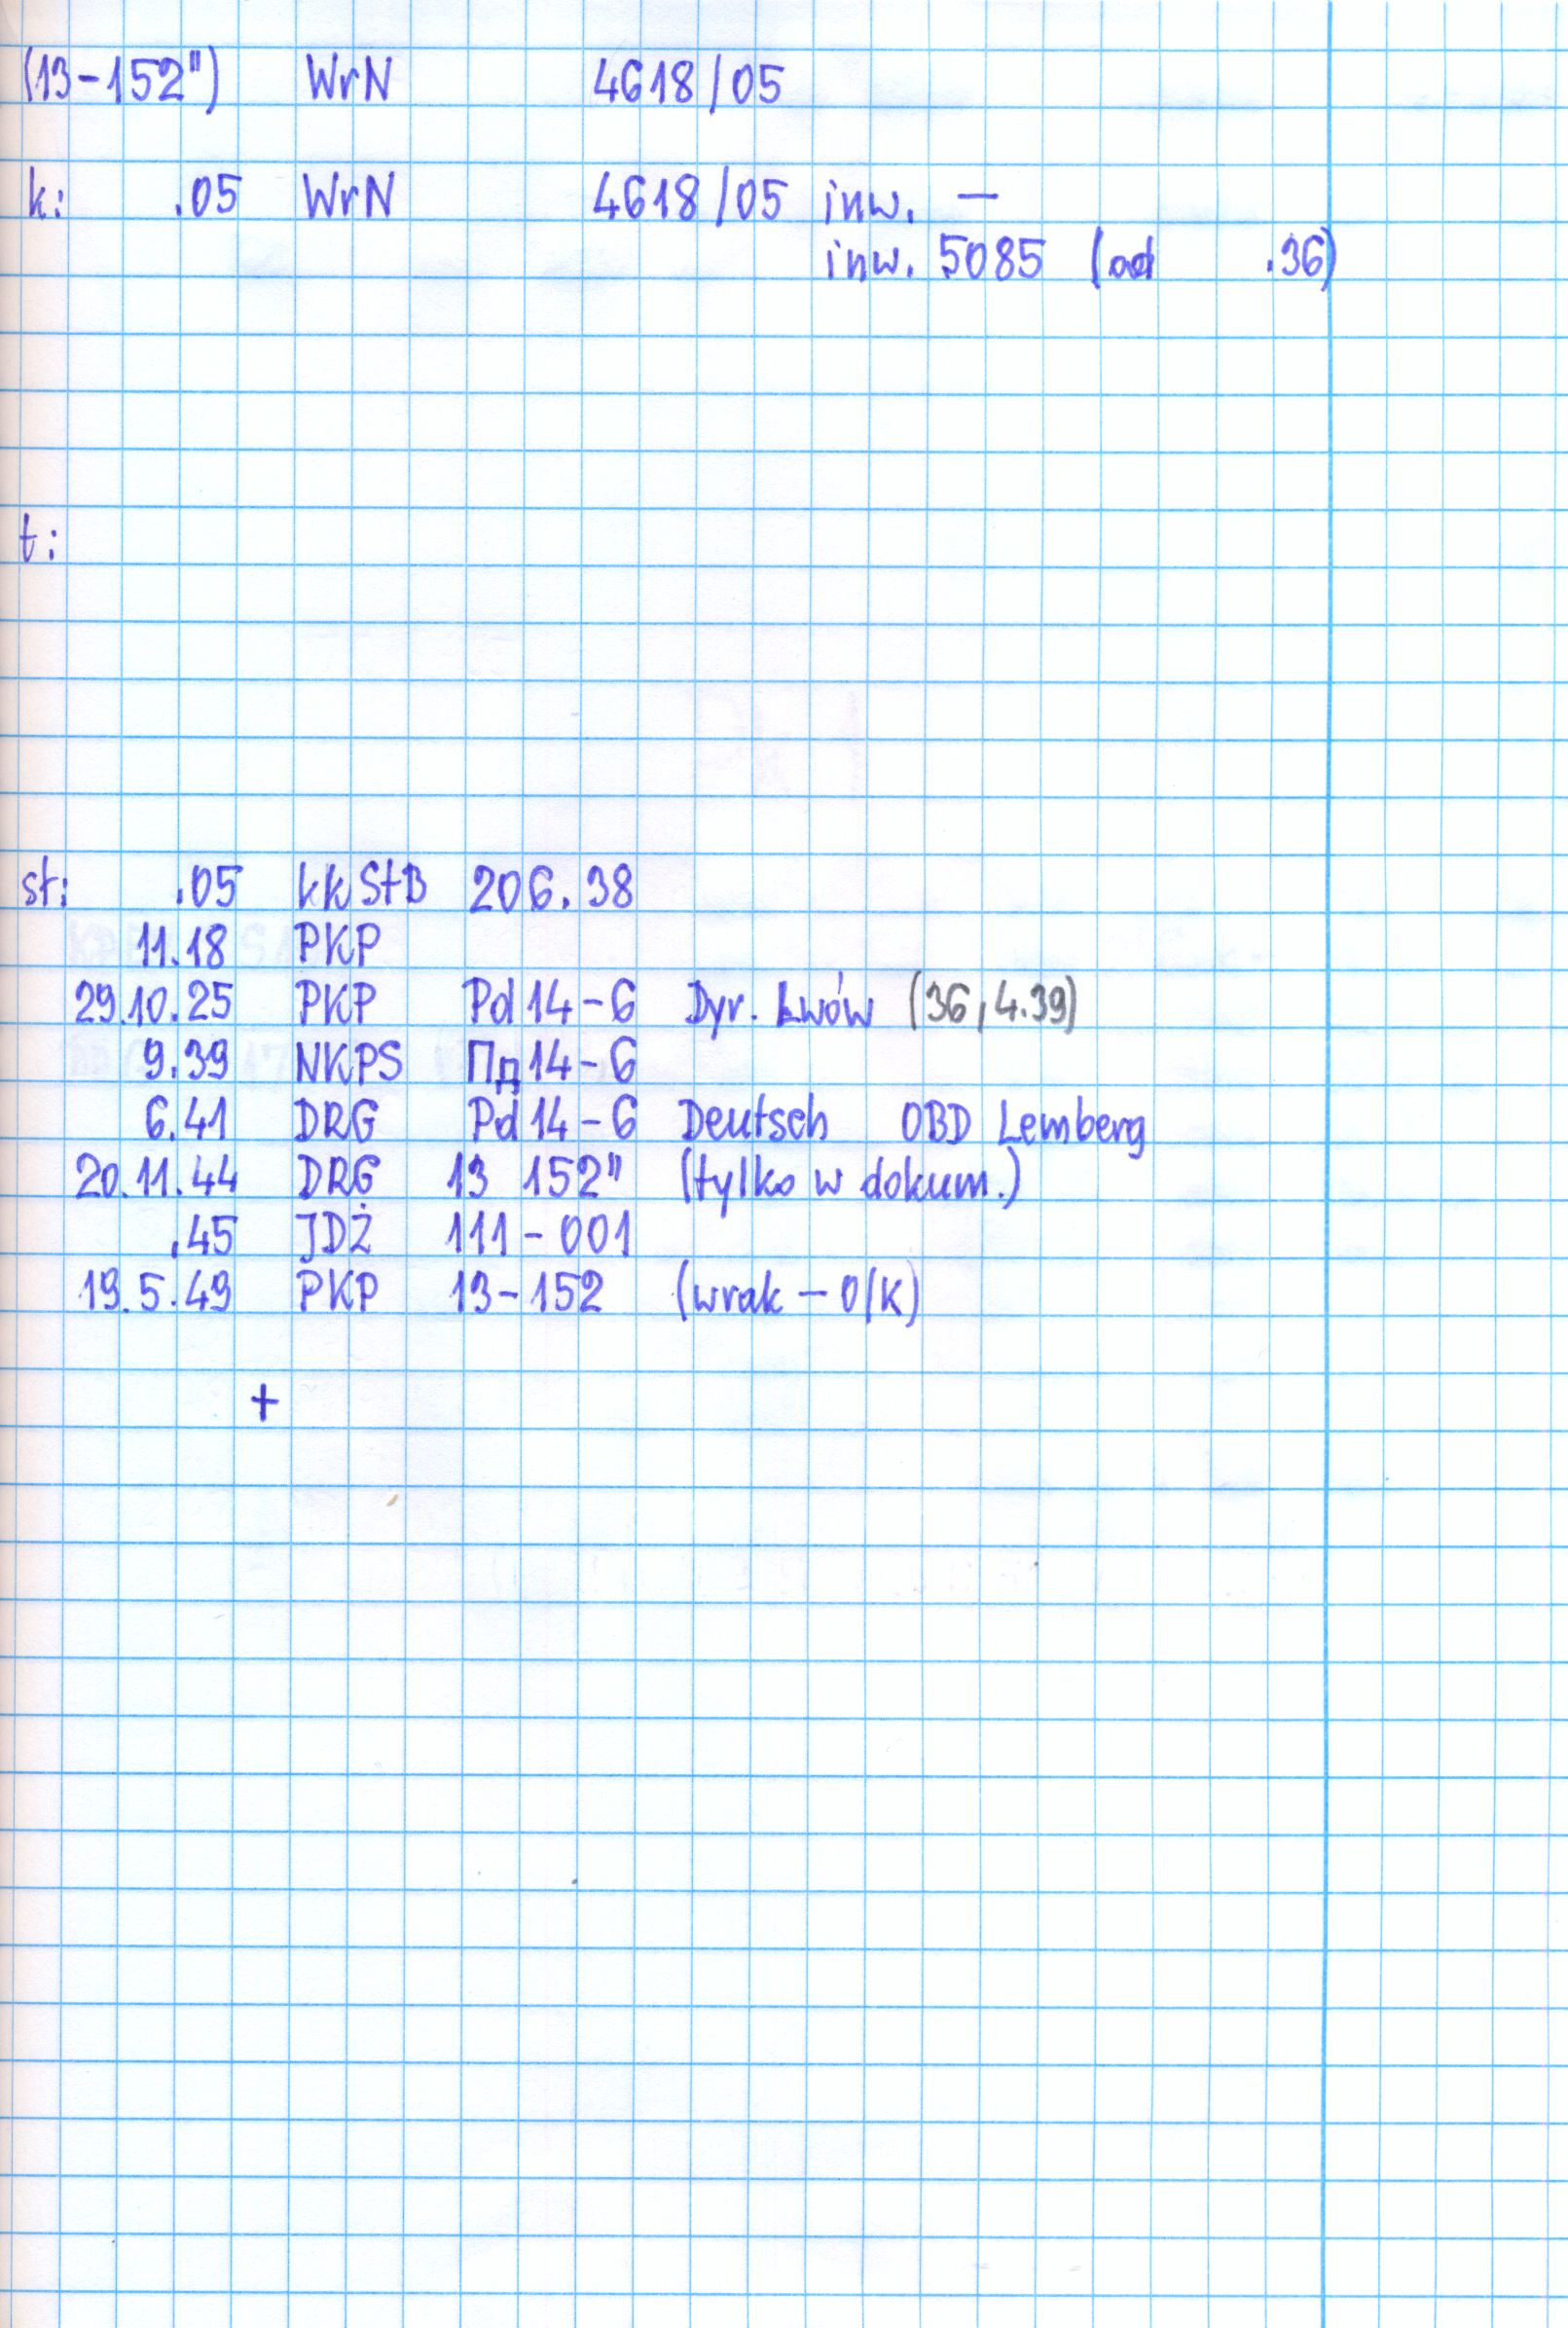 (13-152") WrN 4618/05
k: .05 WrN 4618/05 inw. —
inw. 5085 (od .36)
t:
st: .05 kkStB 206.38
11.18 PKP
29.10.25 PKP Pd14-6 Dyr. Lwów (36, 4.39)
9.39 NKPS Пд14-6
6.41 DRG Pd14-6 Deutsch OBD Lemberg
20.11.44 DRG 13 152" (tylko w dokum.)
.45 JDŽ 111-001
19.5.49 PKP 13-152 (wrak – O/K)
+